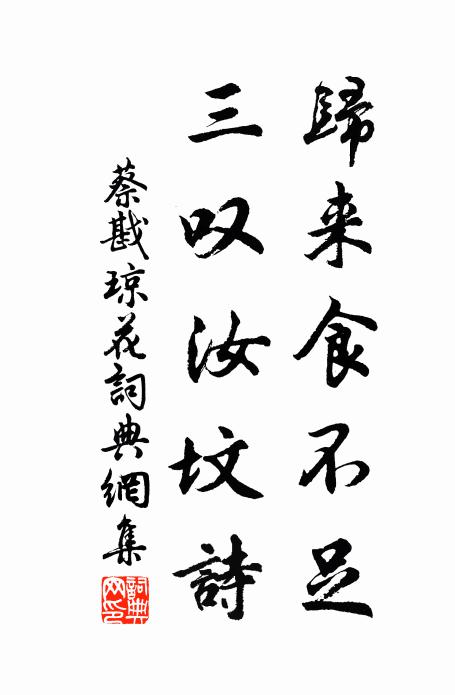 歸来食不足
三叹汝坟詩
蔡戡琼花詞典網集
詞典网印